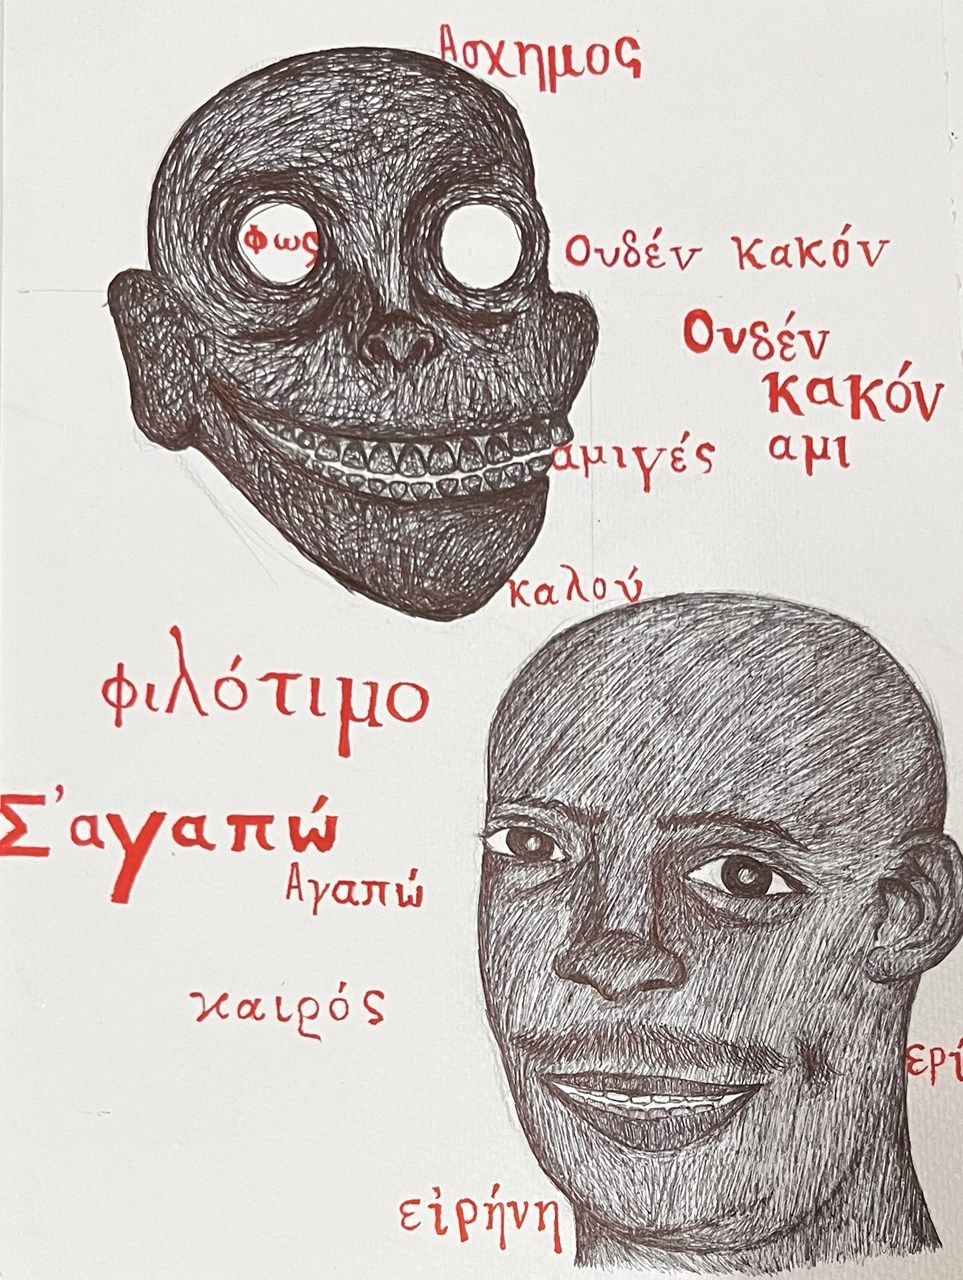 Ασχημος
Φως
Ουδέν κακόν
Ουδέν
κακόν
αμιγές αμι
καλού
φιλότιμο
Σ'αγαπώ
Αγαπώ
καιρός
ερί
εἰρήνη